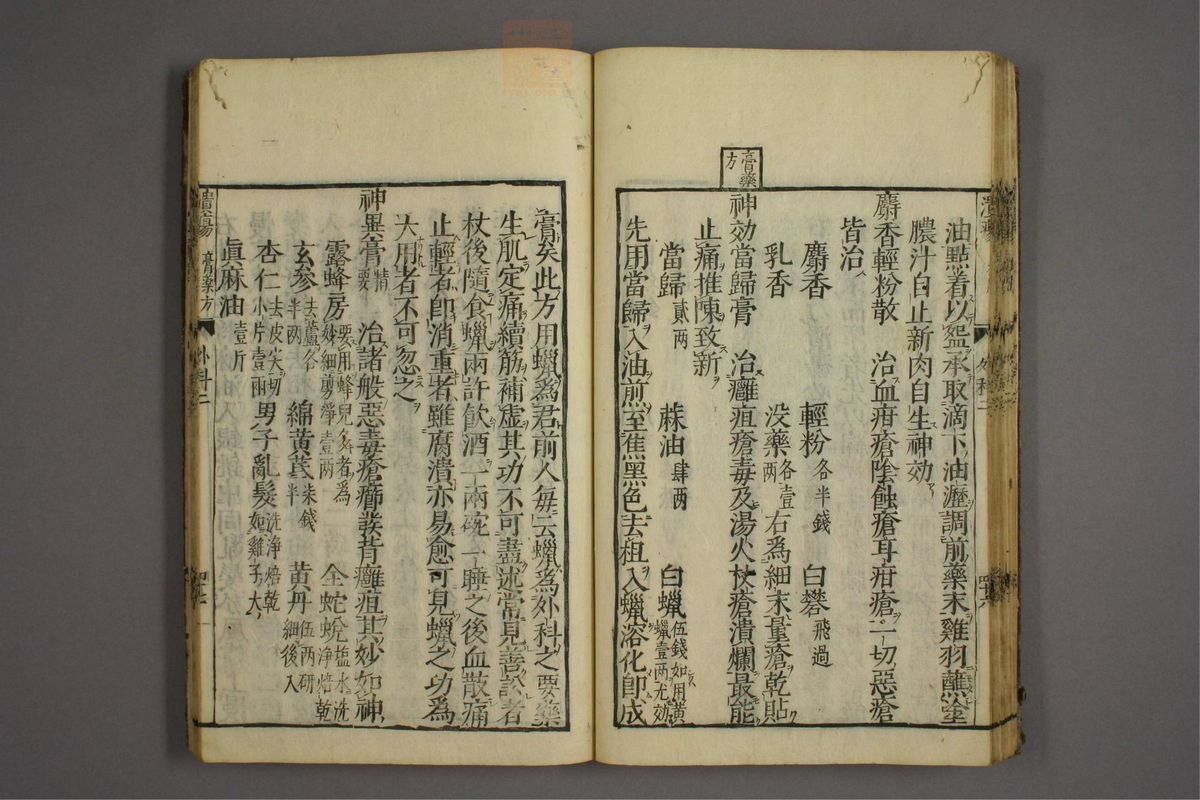 油點着以盌承取滴下油瀝調前藥末雞羽蘸塗
膿汁日止新肉自生神効
麝香輕粉散 治血疳瘡陰蝕瘡耳疳瘡一切惡瘡
皆治
麝香 輕粉各半錢 白礬飛過
乳香 没藥各壹兩 右爲細末量瘡乾貼
膏藥方
神効當歸膏 治癰疽瘡毒及湯火杖瘡潰爛最能
止痛推陳致新
當歸貳兩 蔴油肆兩 白蠟伍錢如用黄蠟壹兩尤効
先用當歸入油煎至焦黑色去柤入蠟溶化卽成
膏矣此方用蠟爲君前人每云蠟爲外科之要藥
生肌定痛續筋補虚其功不可盡述常見善訟者
杖後隨食蠟兩許飲酒一兩碗一睡之後血散痛
止輕者卽消重者雖腐潰亦易愈可見蠟之功爲
大用者不可忽之
神異膏精要 治諸般惡毒瘡癤發背癰疽其妙如神
露蜂房要用蜂兒多者爲妙細剪淨壹兩 全蛇蛻塩水洗淨焙乾
玄參去蘆各半兩 綿黄茋柒錢半 黄丹伍兩研細後入
杏仁去皮尖切小片壹兩 男子亂髮洗淨焙乾如雞子大
眞麻油壹斤
膏藥方 外科二